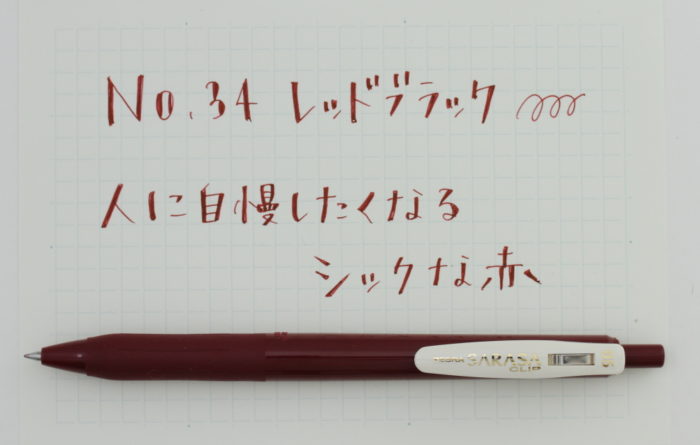 No.34 レッドブラック
人に自慢したくなる
シックな赤
ZEBRA SARASA CLIP 0.5